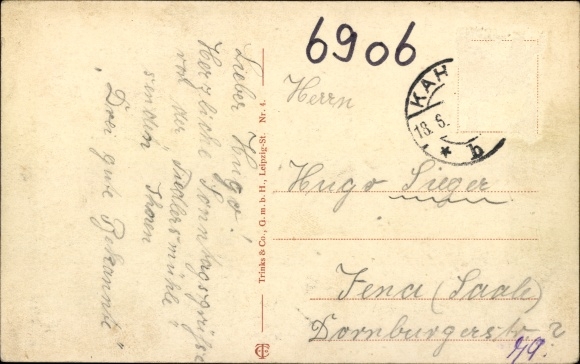 6906
Lieber Hugo!
Herzliche Sonntagsgrüße
von der
senden Ihnen
"Drei gute Bekannte"
Trinks & Co., G. m. b. H., Leipzig-St. Nr. 4.
KAH
18. 6.
* b
Herrn
Hugo Sieger
Jena (Saale)
Dornburgerstr
49.